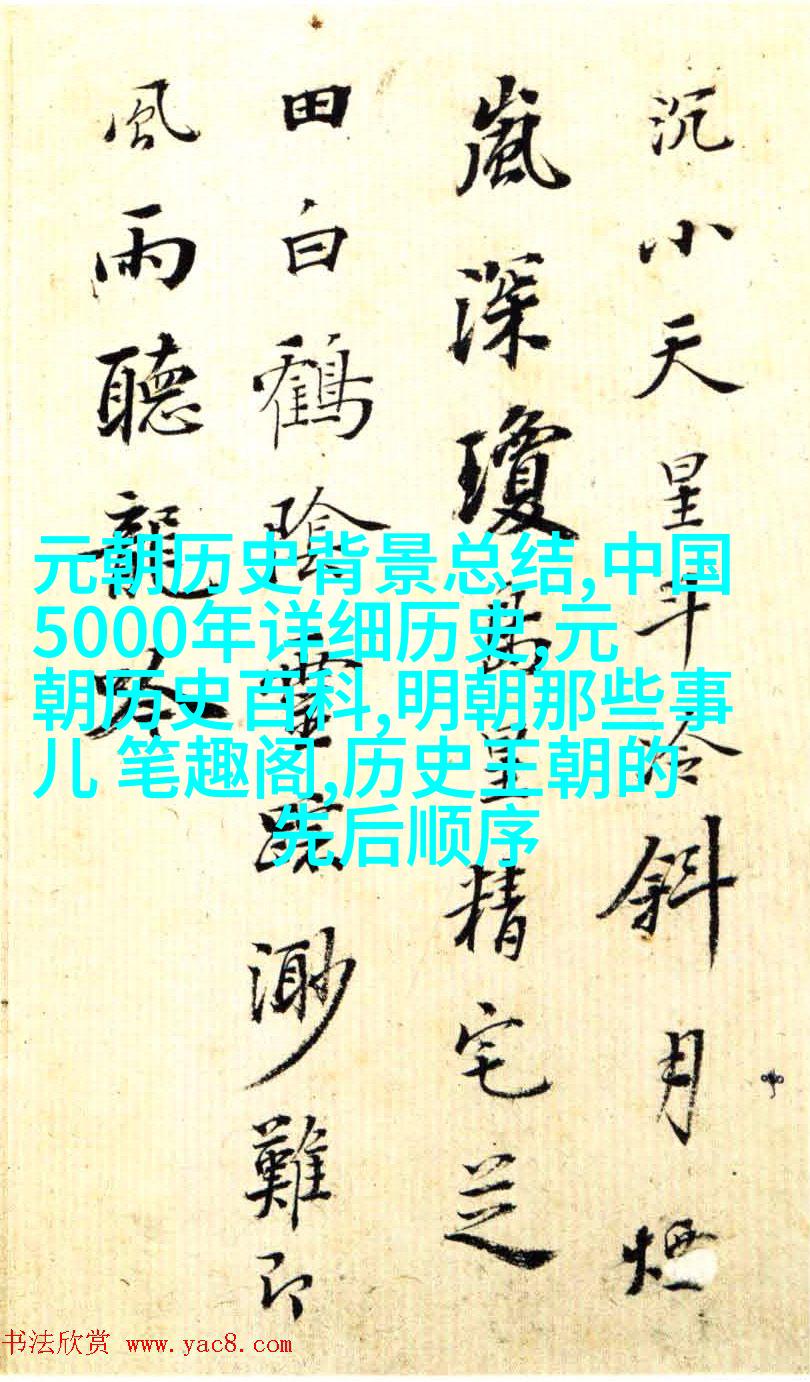 沉小天星斗冷斜月煙
嵐深瓊島星精宅芝
田白鶴陰靈蹤渺難即
風雨聽龍吟
元朝历史背景总结,中国
5000年详细历史,元
朝历史百科,明朝那些事
儿 笔趣阁,历史王朝的
先后顺序
书法欣赏 www.yac8.com